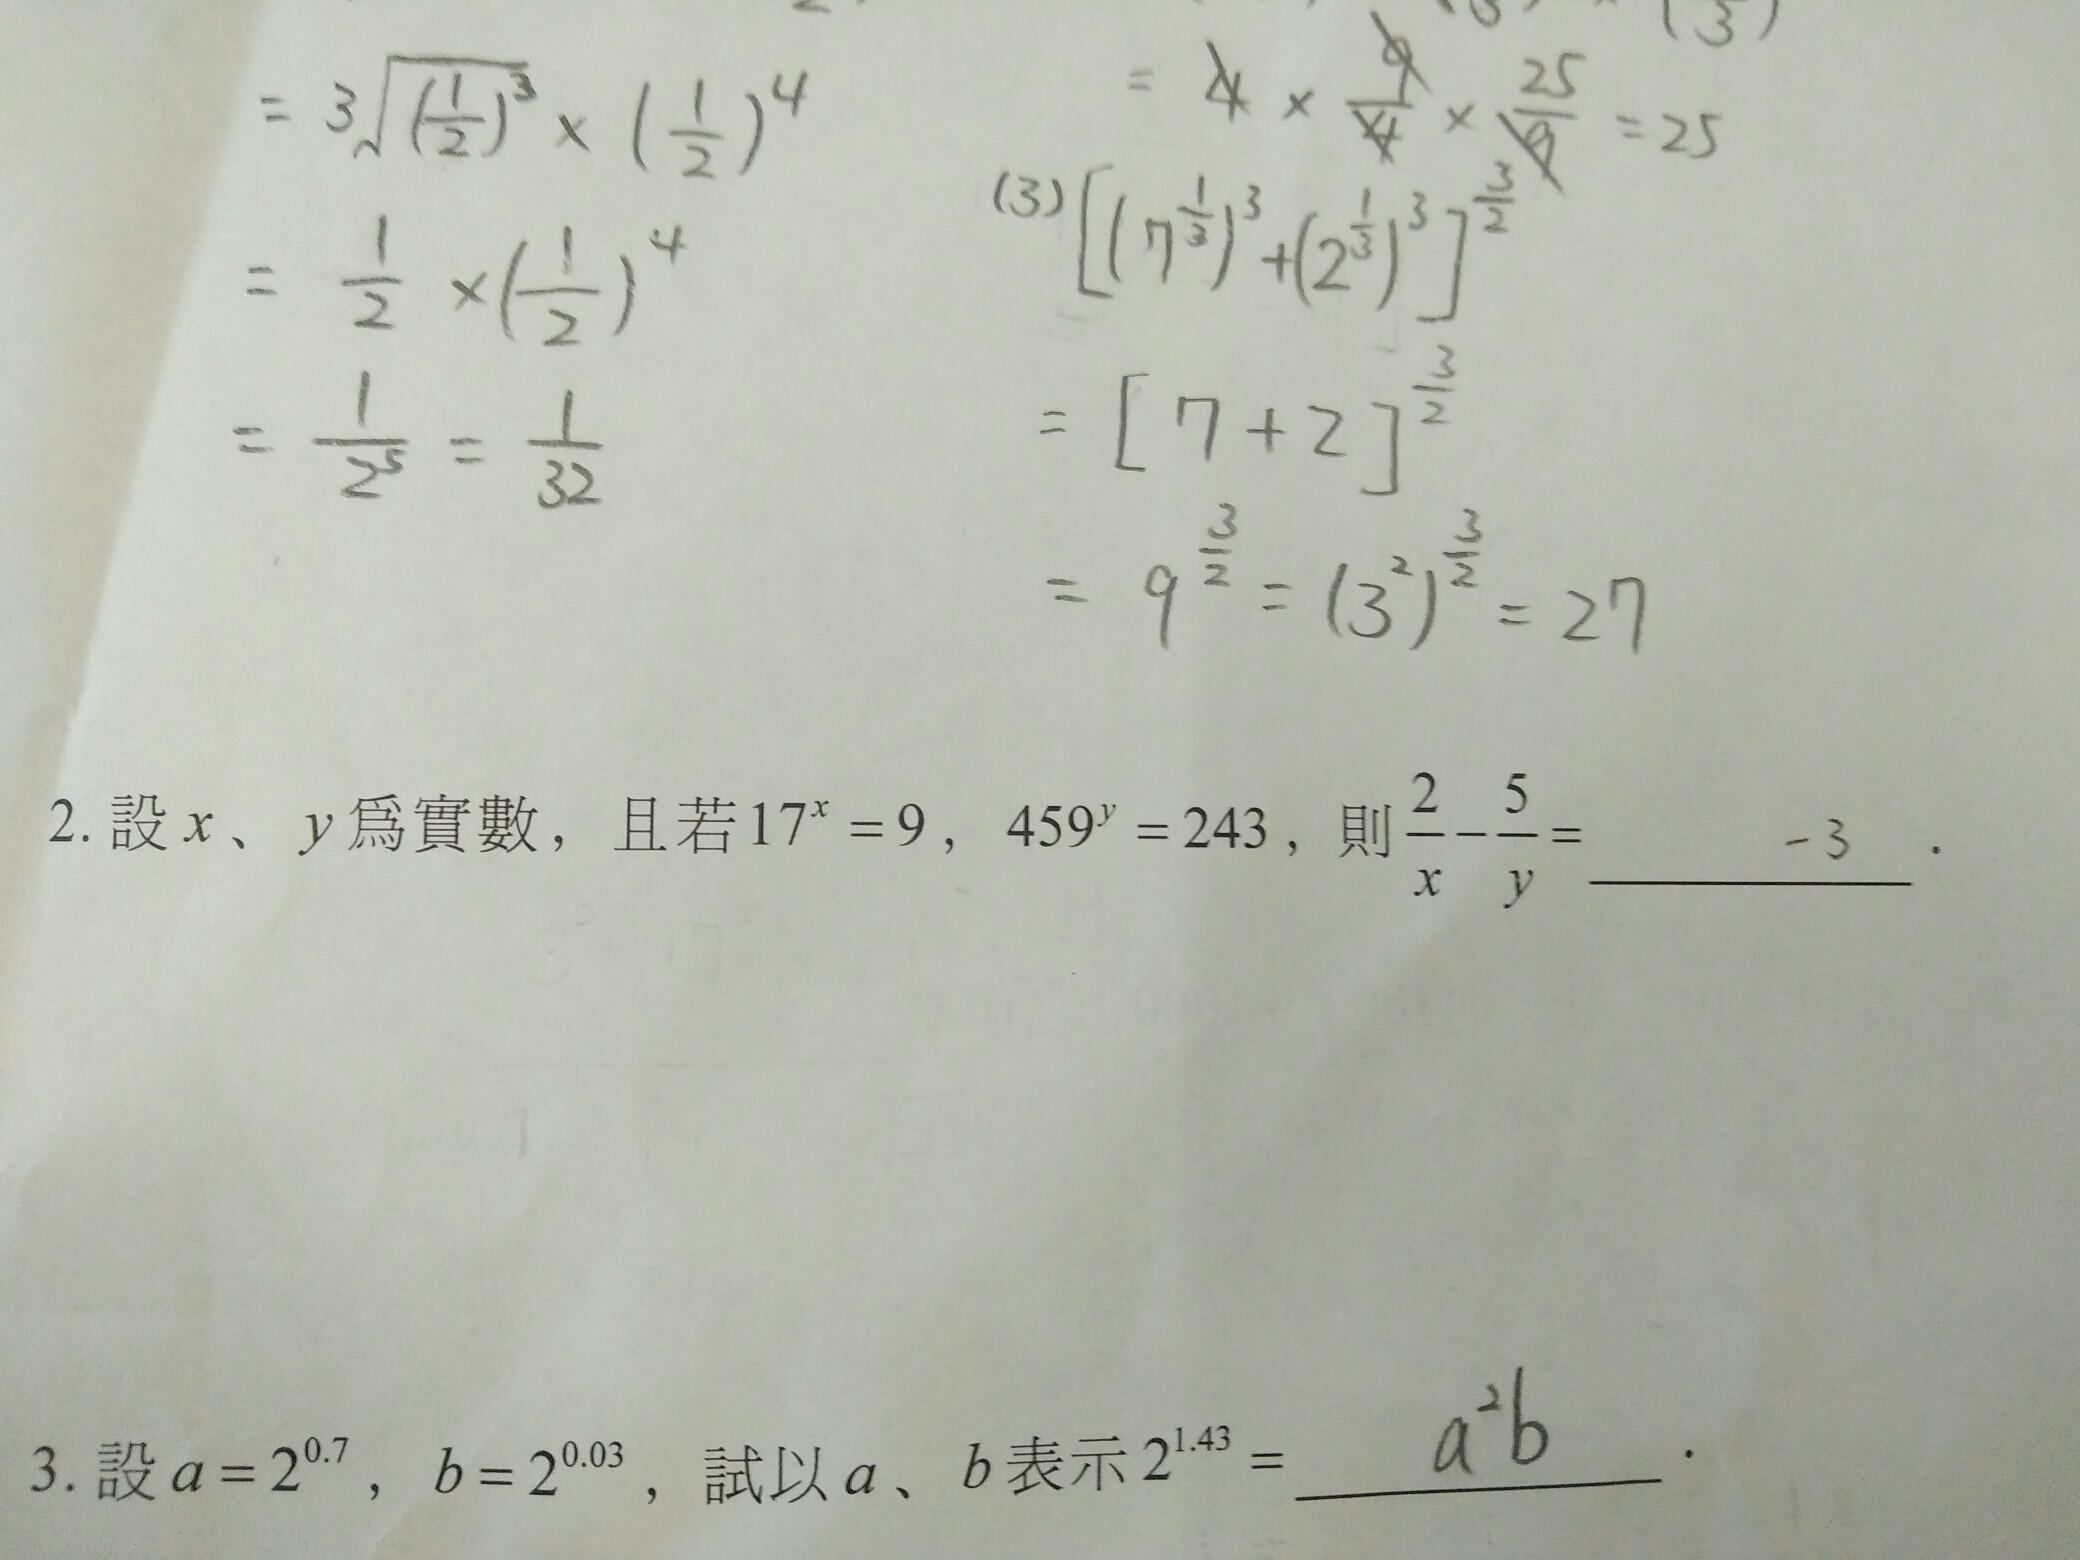 = ³√(1/2)³ × (1/2)⁴
= 1/2 × (1/2)⁴
= 1/2⁵ = 1/32
= 4 × 9/4 × 25/9 = 25
(3) [(7^(1/3))³ + (2^(1/3))³]^(3/2)
= [7 + 2]^(3/2)
= 9^(3/2) = (3²)^(3/2) = 27
2. 設 x、y 爲實數，且若 17^x = 9，459^y = 243，則 2/x − 5/y = -3 .
3. 設 a = 2^0.7，b = 2^0.03，試以 a、b 表示 2^1.43 = a²b .